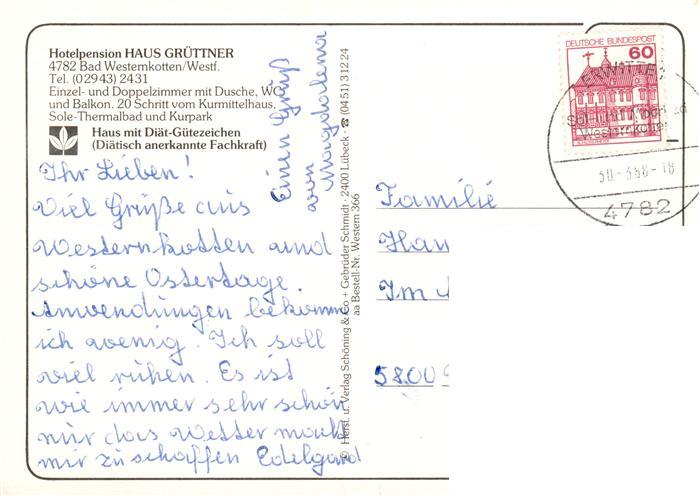 Hotelpension HAUS GRÜTTNER
4782 Bad Westernkotten/Westf.
Tel. (02943) 2431
Einzel- und Doppelzimmer mit Dusche, WC
und Balkon. 20 Schritt vom Kurmittelhaus,
Sole-Thermalbad und Kurpark
Haus mit Diät-Gütezeichen
(Diätisch anerkannte Fachkraft)
Ihr Lieben!
Viel Grüße aus
Westernkotten und
schöne Ostertage.
Anwendungen bekomme
ich wenig. Ich soll
viel ruhen. Es ist
wie immer sehr schön
nur das Wetter macht
mir zu schaffen Edelgard
Einen Gruß
von Magdalena
© Herst. u. Verlag Schöning & Co + Gebrüder Schmidt · 2400 Lübeck · ☎ (0451) 31224
aa Bestell-Nr. Western 366
DEUTSCHE BUNDESPOST
60
ERWITTE
Westernkotten
4782
Familie
Han
Im
5800